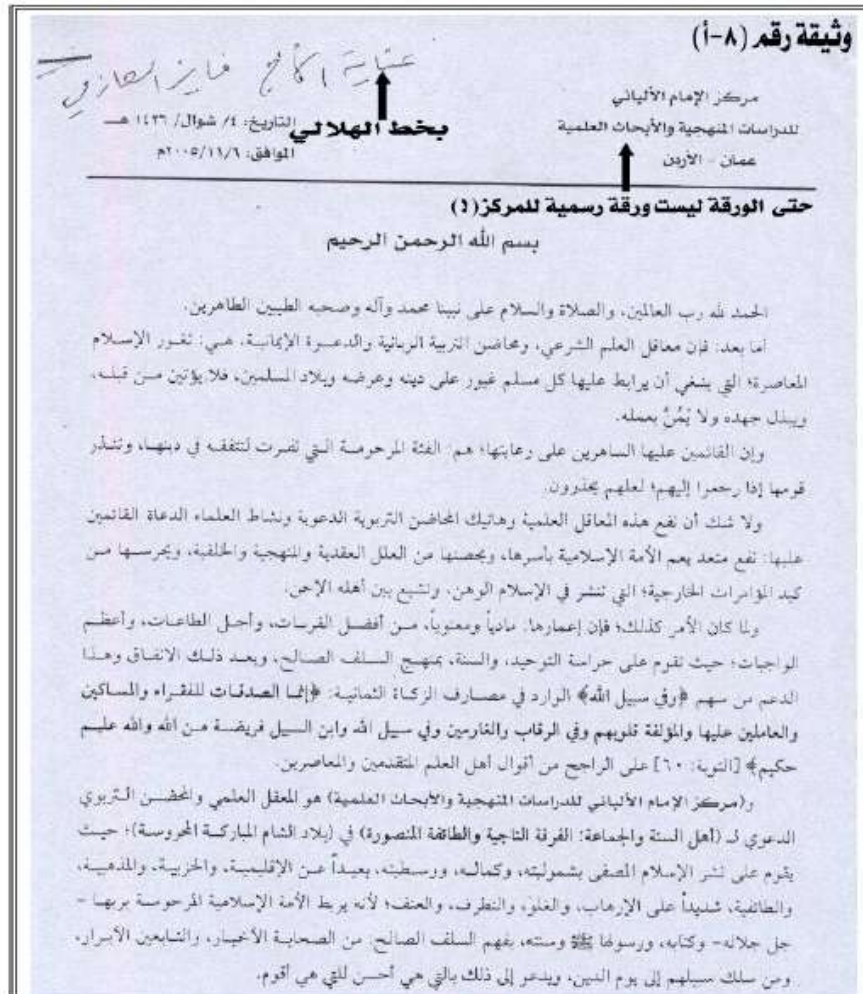 وثيقة رقم (٨-أ)
عناية الأخ فايز
بخط الهلالي
مركز الإمام الألباني
للدراسات المنهجية والأبحاث العلمية
عمان - الأردن
التاريخ: ٤/ شوال/ ١٤٢٦ هـ
الموافق: ٢٠٠٥/١١/٦م
حتى الورقة ليست ورقة رسمية للمركز(؟)
بسم الله الرحمن الرحيم
الحمد لله رب العالمين، والصلاة والسلام على نبينا محمد وآله وصحبه الطيبين الطاهرين.
أما بعد: فإن معاقل العلم الشرعي، ومحاضن التربية الربانية والدعوة الإيمانية. هي: ثغور الإسلام
المعاصرة؛ التي ينبغي أن يرابط عليها كل مسلم غيور على دينه وعرضه وبلاد المسلمين، فلا يؤتين من قبله،
ويبذل جهده ولا يَمُنُّ بعمله.
وإن القائمين عليها الساهرين على رعايتها؛ هم: الفئة المرحومة التي نفرت لتتفقه في دينها، وتنذر
قومها إذا رجعوا إليهم؛ لعلهم يحذرون.
ولا شك أن نفع هذه المعاقل العلمية وهاتيك المحاضن التربوية الدعوية ونشاط العلماء الدعاة القائمين
عليها: نفع متعد يعم الأمة الإسلامية بأسرها، ويحصنها من العلل العقدية والمنهجية والخلقية، ويحرسها من
كيد المؤامرات الخارجية؛ التي تنشر في الإسلام الوهن، وتشيع بين أهله الإحن.
ولما كان الأمر كذلك؛ فإن إعمارها: مادياً ومعنوياً، من أفضل القربات، وأجل الطاعات، وأعظم
الواجبات؛ حيث تقوم على حراسة التوحيد، والسنة، بمنهج السلف الصالح، وبعد ذلك الانفاق وهذا
الدعم من سهم ﴿وفي سبيل الله﴾ الوارد في مصارف الزكاة الثمانية: ﴿إنما الصدقات للفقراء والمساكين
والعاملين عليها والمؤلفة قلوبهم وفي الرقاب والغارمين وفي سبيل الله وابن السبيل فريضة من الله والله عليم
حكيم﴾ [التوبة: ٦٠] على الراجح من أقوال أهل العلم المتقدمين والمعاصرين.
و(مركز الإمام الألباني للدراسات المنهجية والأبحاث العلمية) هو المعقل العلمي والمحضن التربوي
الدعوي لـ (أهل السنة والجماعة: الفرقة الناجية والطائفة المنصورة) في (بلاد الشام المباركة المحروسة)؛ حيث
يقوم على نشر الإسلام المصفى بشموليته، وكماله، ووسطيته، بعيداً عن الإقليمية، والحزبية، والمذهبية،
والطائفية، شديداً على الإرهاب، والغلو، والتطرف، والعنف؛ لأنه يربط الأمة الإسلامية المرحومة بربها -
جل جلاله- وكتابه، ورسولها ﷺ وسنته، بفهم السلف الصالح: من الصحابة الأخيار، والتابعين الأبرار،
ومن سلك سبيلهم إلى يوم الدين، ويدعو إلى ذلك بالتي هي أحسن للتي هي أقوم.